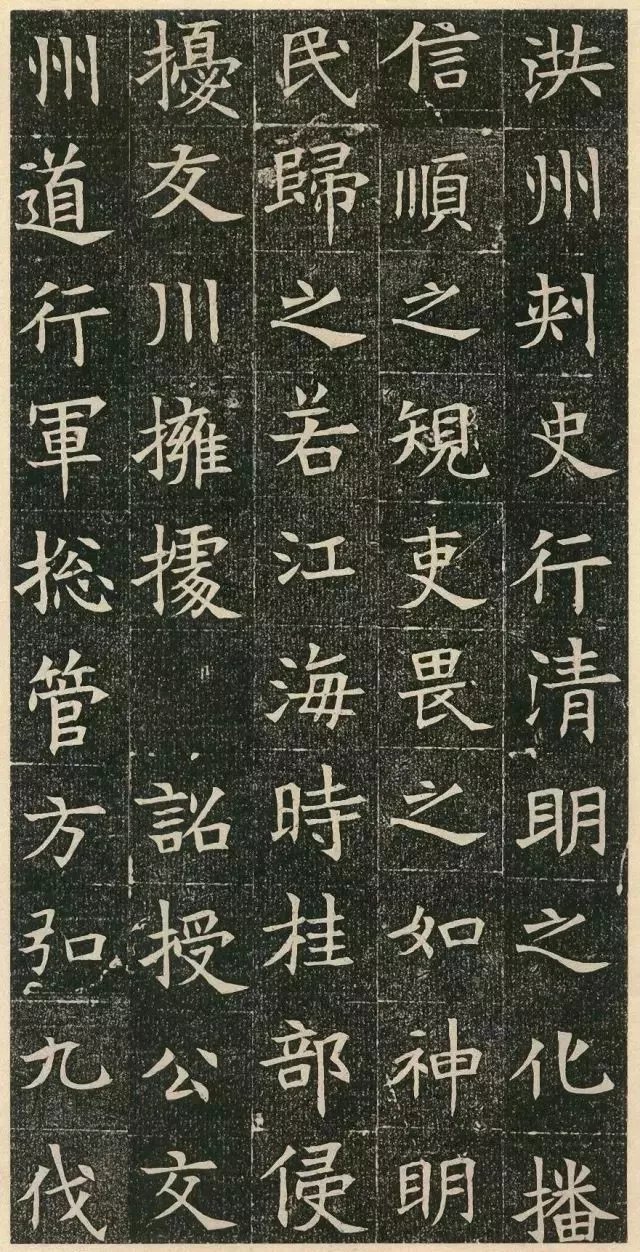 洪州刺史行清明之化播
信順之規吏畏之如神明
民歸之若江海時桂部侵
擾友川擁據詔授公交
州道行軍揔管方弘九伐